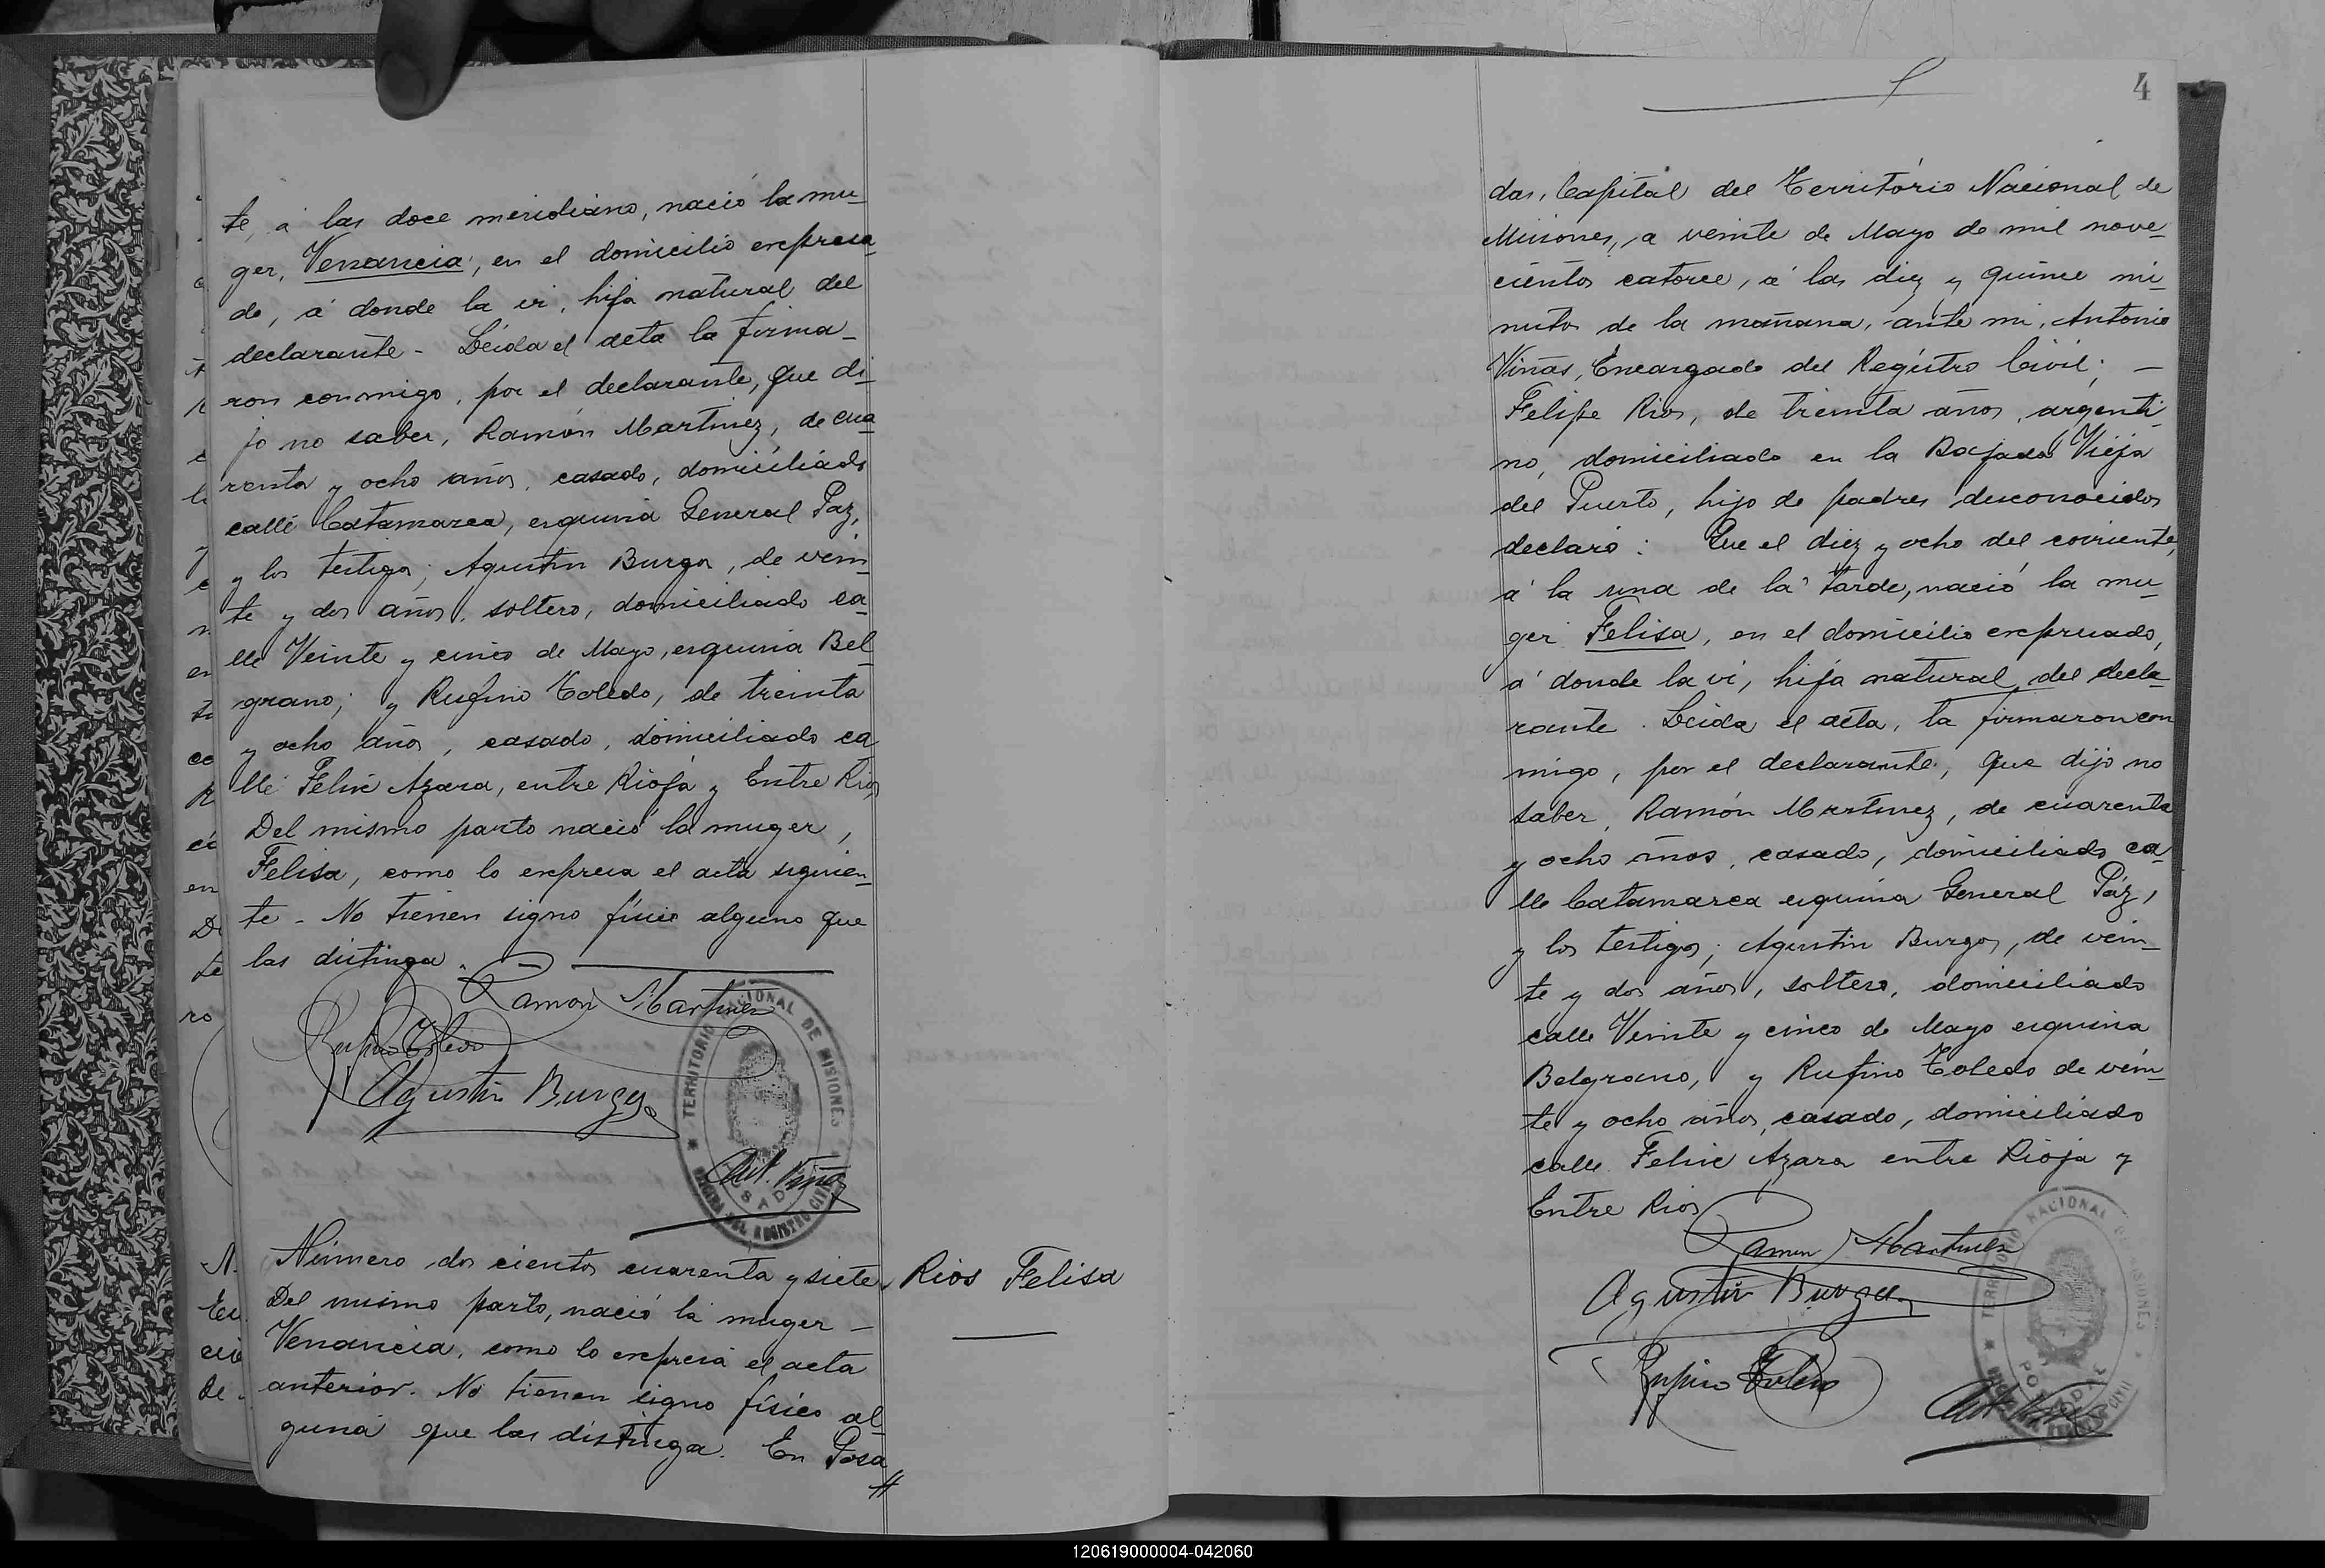 te, á las doce meridiano, nació la mu-
ger, Venancia, en el domicilio expresa-
do, á donde la vi, hija natural del
declarante - Leida el acta la firma-
ron conmigo, por el declarante, que di-
jo no saber, Ramón Martinez, de cua-
renta y ocho años, casado, domiciliado
calle Catamarca, esquina General Paz,
y los testigos; Agustin Burgos, de vein-
te y dos años, soltero, domiciliado ca-
lle Veinte y cinco de Mayo, esquina Bel-
grano; y Rufino Toledo, de treinta
y ocho años, casado, domiciliado ca-
lle Felix Azara, entre Rioja y Entre Rios
Del mismo parto nació la muger,
Felisa, como lo expresa el acta siguien-
te - No tienen signo físico alguno que
las distinga.
Ramon Martinez
Rufino Toledo
Agustin Burgos
TERRITORIO NACIONAL DE MISIONES
POSADAS
OFICINA DEL REGISTRO CIVIL
Ant. Viñas
Número dos cientos cuarenta y siete
Rios Felisa
Del mismo parto, nació la muger -
Venancia, como lo expresa el acta
anterior. No tienen signo físico al-
guno que las distinga. En Posa
4
das, Capital del Território Nacional de
Misiones, a veinte de Mayo de mil nove-
cientos catorce, á las diez y quince mi-
nutos de la mañana, ante mi, Antonio
Viñas, Encargado del Registro Civil; -
Felipe Rios, de treinta años, argenti-
no, domiciliado en la Bajada Vieja
del Puerto, hijo de padres desconocidos
declaró: Que el diez y ocho del corriente,
á la una de la tarde, nació la mu-
ger Felisa, en el domicilio expresado,
á donde la vi, hija natural del decla-
rante. Leida el acta, la firmaron con
migo, por el declarante, que dijo no
saber, Ramón Martinez, de cuarenta
y ocho años, casado, domiciliado ca-
lle Catamarca esquina General Páz,
y los testigos; Agustin Burgos, de vein-
te y dos años, soltero, domiciliado
calle Veinte y cinco de Mayo esquina
Belgrano, y Rufino Toledo de vein-
te y ocho años, casado, domiciliado
calle Felix Azara entre Rioja y
Entre Rios
Ramon Martinez
Agustin Burgos
Rufino Toledo
TERRITORIO NACIONAL DE MISIONES
POSADAS
Ant. Viñas
120619000004-042060